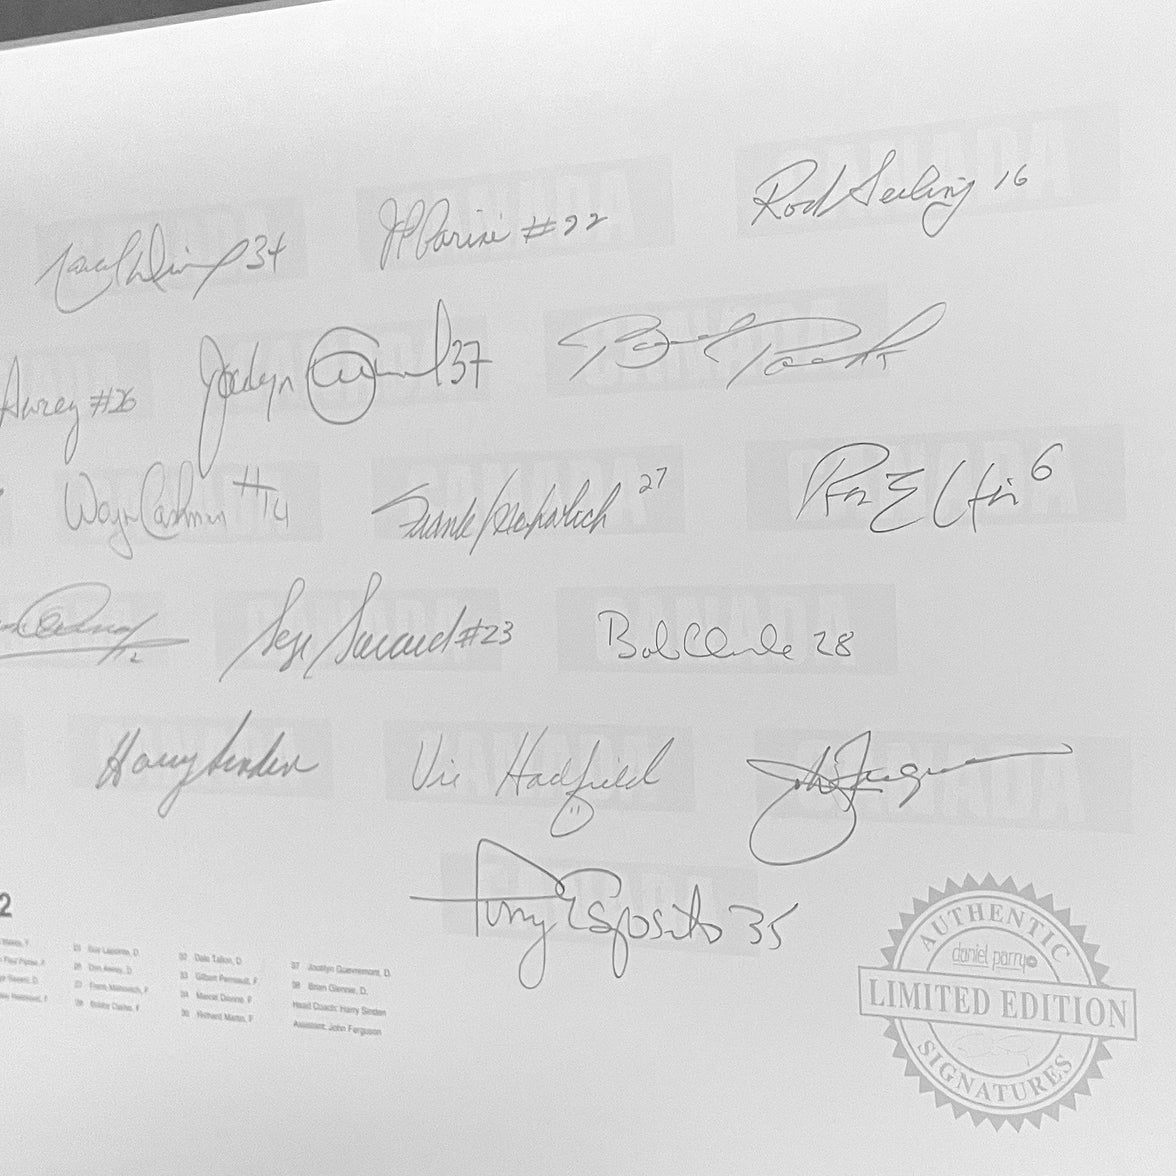 Marcel Dionne 34
JP Parise #22
Rod Seiling 16
Awrey #26
Jocelyn Guevremont 37
Brad Park
Wayne Cashman #14
Frank Mahovlich 27
Ron Ellis 6
12
Serge Savard #23
Bob Clarke 28
Harry Sinden
Vic Hadfield
John Ferguson
Tony Esposito 35
2
21 Guy Lapointe, D.
32 Dale Tallon, D.
37 Jocelyn Guevremont, D.
26 Don Awrey, D.
33 Gilbert Perreault, F.
38 Brian Glennie, D.
27 Frank Mahovlich, F.
34 Marcel Dionne, F.
Head Coach: Harry Sinden
28 Bobby Clarke, F.
36 Richard Martin, F.
Assistant: John Ferguson
AUTHENTIC
daniel parry
LIMITED EDITION
SIGNATURES